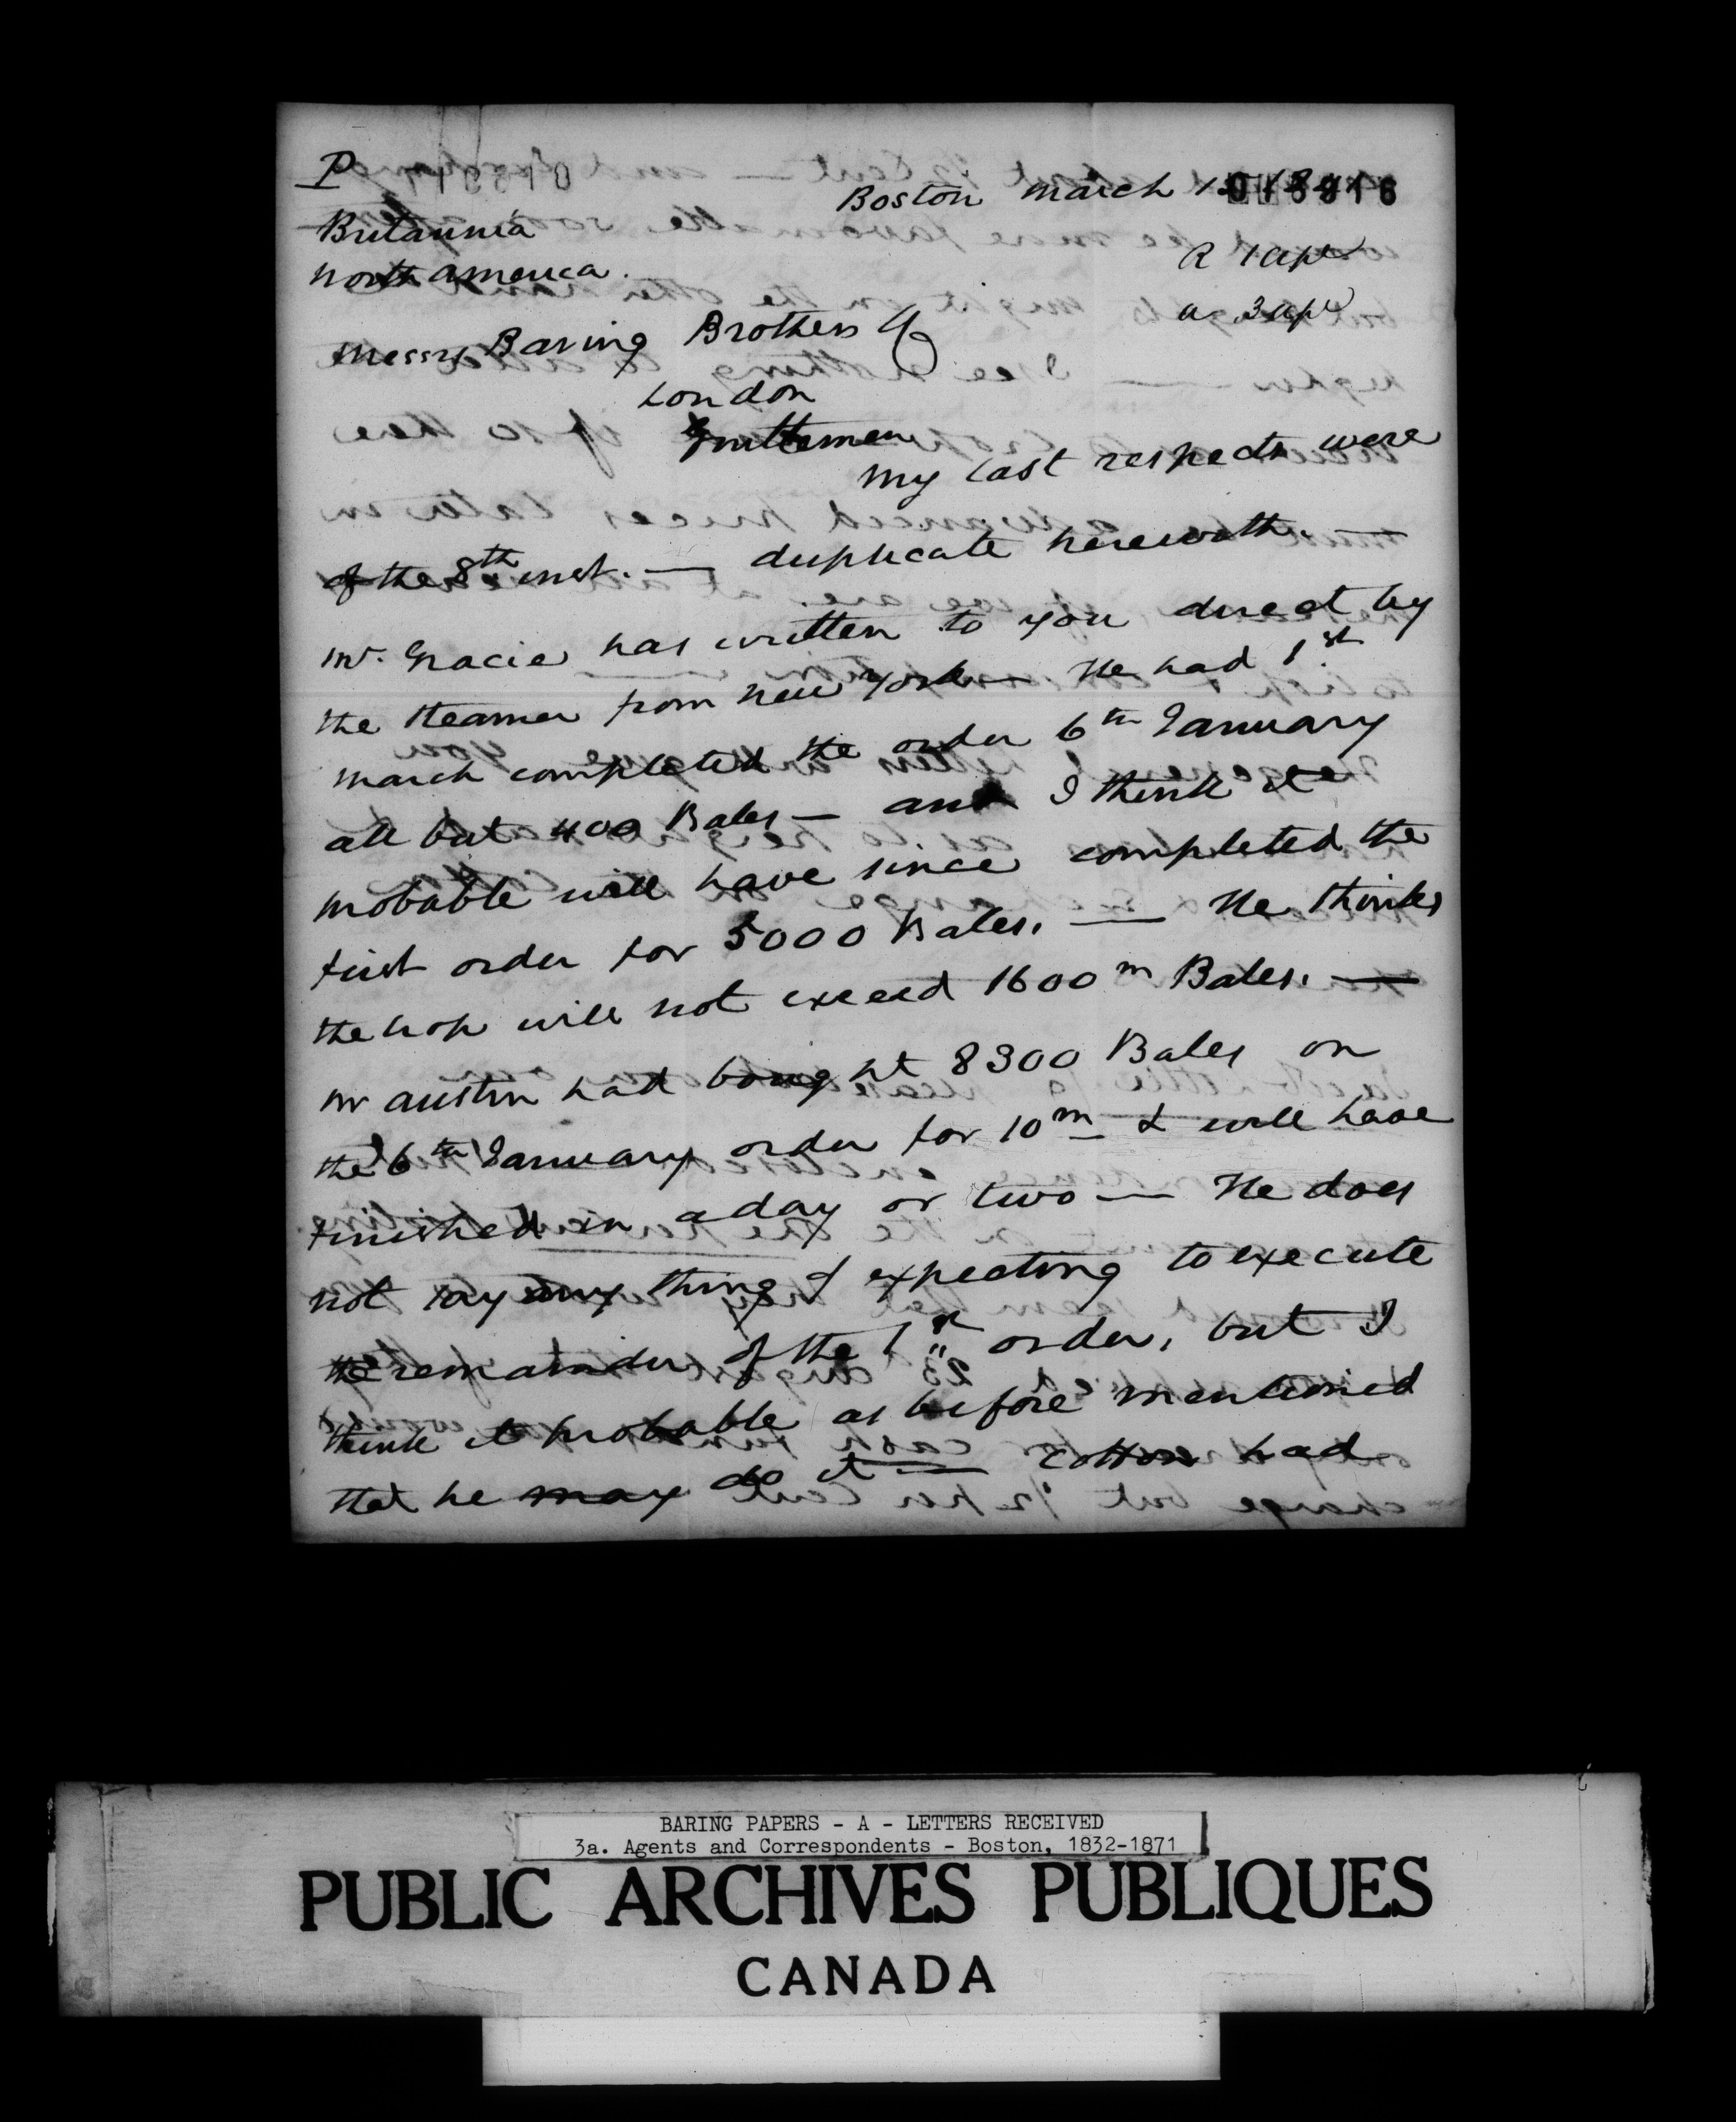 P
Boston March 1
018916
Britannia
North America.
R 1 Apl
a 3 apl
Messrs Baring Brothers & Co
London
Gentlemen
My last respects were
of the 8th inst. — duplicate herewith. —
Mr. Gracie has written to you direct by
the steamer from New York — He had 1st
March completed the order 6th January
all but 400 Bales — and I think it
probable will have since completed the
first order for 5000 Bales. — He thinks
the crop will not exceed 1600m Bales. —
Mr Austin had bought 8300 Bales on
the 6th January order for 10m & will have
finished in a day or two — He does
not say any thing of expecting to execute
the remainder of the 1st order, but I
think it probable as before mentioned
that he may do it — Cotton had
BARING PAPERS - A - LETTERS RECEIVED
3a. Agents and Correspondents - Boston, 1832-1871
PUBLIC ARCHIVES PUBLIQUES
CANADA